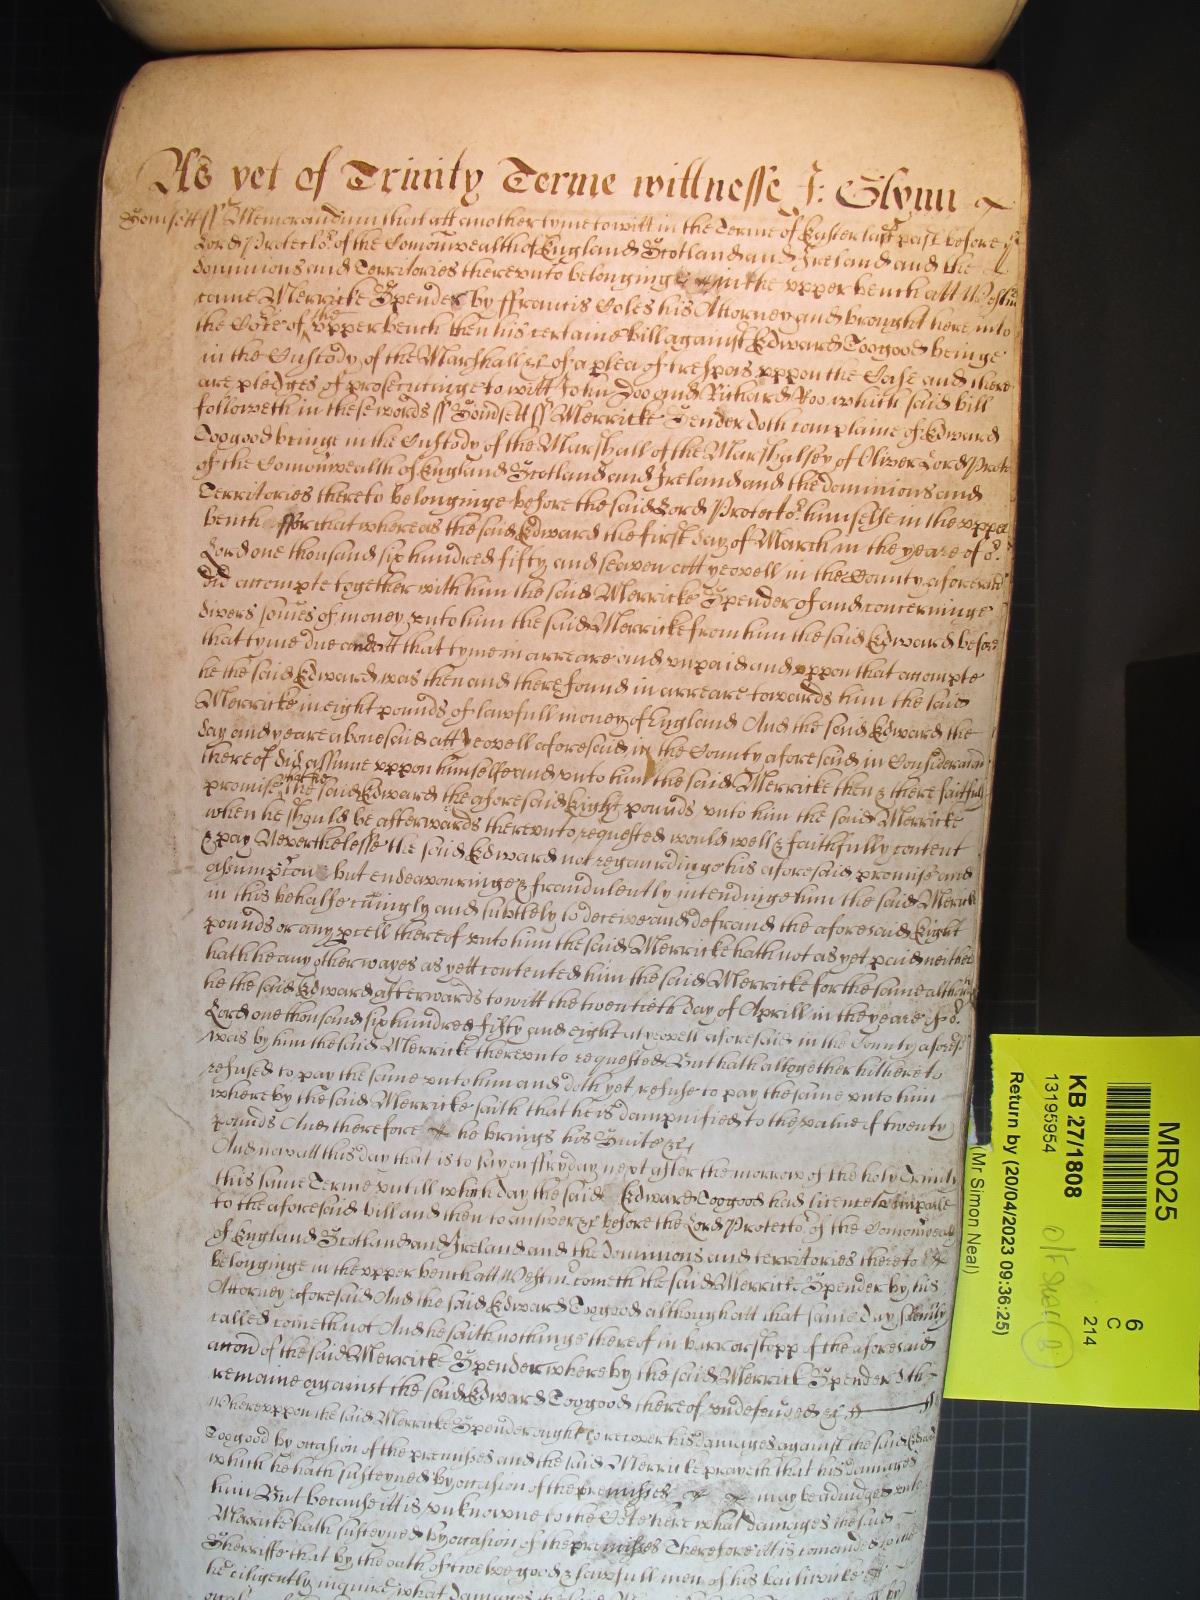 As yet of Trinity Terme wittnesse J: Glynn
Somsett ss Memorandum that att another tyme to witt in the Terme of Easter last past before ye
Lord Protector of the Comonwealth of England Scotland and Ireland and the
dominions and Territories therevnto belonginge in the vpper bench att Westm
came Merricke Spender by ffrancis Coles his Attorney and brought here into
the Cote of the vpper bench then his certaine bill against Edward Toogood beinge
in the Custody of the Marshall &c of a plea of trespas vppon the Case and there
are pledges of prosecutinge to witt John Doo and Richard Roo which said bill
followeth in these words ss Somsett ss Merricke Spender doth complaine of Edward
Toogood beinge in the Custody of the Marshall of the Marshalsey of Oliver Lord Protec
of the Comonwealth of England Scotland and Ireland and the dominions and
Territories thereto belonginge before the said Lord Protector himselfe in the vpper
bench ffor that whereas the said Edward the first day of March in the yeare of or
Lord one thousand six hundred fifty and seaven att yeovell in the County aforesaid
did accompte together with him the said Merricke Spender of and concerninge
divers somes of money vnto him the said Merricke from him the said Edward before
that tyme due and att that tyme in arreare and vnpaid and vppon that accompte
he the said Edward was then and there found in arreare towards him the said
Merricke in eight pounds of lawfull money of England And the said Edward the
day and yeare abovesaid att yeovell aforesaid in the County aforesaid in Consideracon
thereof did assume vppon himselfe and vnto him the said Merricke then & there faithfully
promise that he the said Edward the aforesaid Eight pounds vnto him the said Merricke
when he should be afterwards therevnto requested would well & faithfully content
& pay Neverthelesse the said Edward not regardinge his aforesaid promise and
assumpcon but endeavouringe & fraudulently intendinge him the said Merricke
in this behalfe cuningly and subtlely to deceive and defraud the aforesaid Eight
pounds or any pcell thereof vnto him the said Merricke hath not as yet paid neither
hath he any other wayes as yett contented him the said Merricke for the same although
he the said Edward afterwards to witt the twentieth day of Aprill in the yeare of or
Lord one thousand six hundred fifty and eight at yeovell aforesaid in the County aforesd
was by him the said Merricke therevnto requested But hath altogether hitherto
refused to pay the same vnto him and doth yet refuse to pay the same vnto him
whereby the said Merricke saith that he is dampnified to the value of twenty
pounds And therefore he brings his Suite &c
And now att this day that is to say on ffryday next after the morrow of the holy Trinity
this same Terme vntill which day the said Edward Toogood had licence to imparle
to the aforesaid bill and then to answer &c before the Lord Protector of the Comonwealth
of England Scotland and Ireland and the dominions and territories thereto
belonginge in the vpper bench att Westm cometh the said Merricke Spender by his
Attorney aforesaid And the said Edward Toogood although att that same day solemnly
called cometh not And he saith nothinge thereof in barr or stopp of the aforesaid
accon of the said Merricke Spender whereby the said Merrick Spender
remaine against the said Edward Toogood thereof vndefended &c
Wherevppon the said Merricke Spender ought to recover his damages against the said Edward
Toogood by occasion of the premisses and the said Merricke prayeth that his damages
which he hath susteyned by occasion of the premisses may be adiudged vnto
him But because itt is vnknowne to the Cote here what damages the said
Merricke hath susteyned by occasion of the premisses Therefore itt is comanded to the
Sherriffe that by the oath of twelve good & lawfull men of his bailiwicke
he diligently inquire what damages the said
MR025
6
C
214
KB 27/1808
13195954
Return by (20/04/2023 09:36:25)
(Mr Simon Neal)